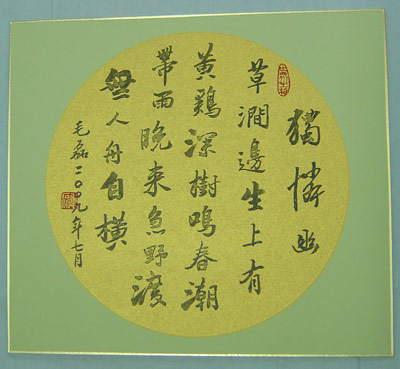 獨憐幽
草澗邊生上有
黃鸝深樹鳴春潮
帶雨晚来急野渡
無人舟自橫
毛磊二〇〇九年七月